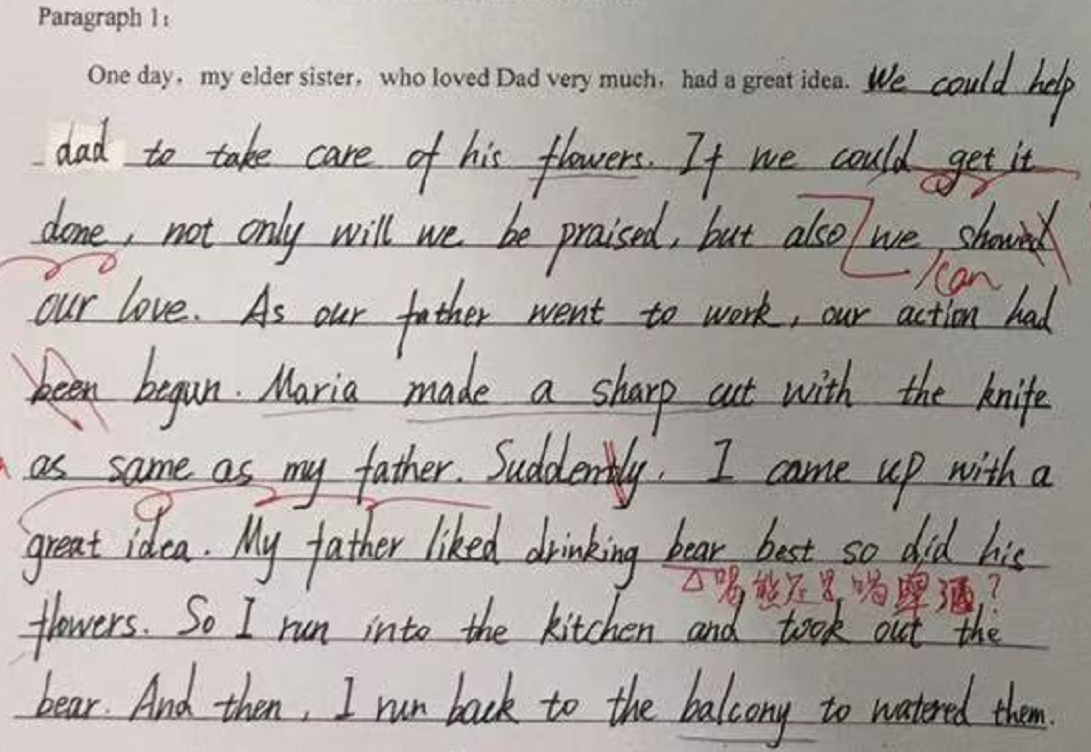 Paragraph 1:
One day, my elder sister, who loved Dad very much, had a great idea. We could help
dad to take care of his flowers. If we could get it
done, not only will we be praised, but also we showed
can
our love. As our father went to work, our action had
been begun. Maria made a sharp cut with the knife
as same as my father. Suddently. I came up with a
great idea. My father liked drinking bear best so did his
喝熊还是喝啤酒?
flowers. So I run into the kitchen and took out the
bear. And then, I run back to the balcony to watered them.